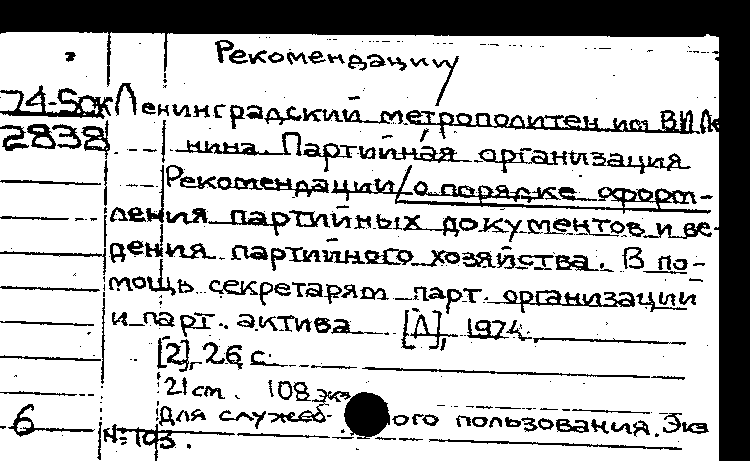 Рекомендации/
74-5ок Ленинградский метрополитен им В.И Ле
2838 нина. Партийная организация
Рекомендации/о порядке оформ-
ления партийных документов и ве-
дения партийного хозяйства. В по-
мощь секретарям парт. организации
и парт. актива [Л], 1974.
[2], 26 с.
21 см. 108 экз
6 Для служеб- ного пользования. Экз
№ 103.